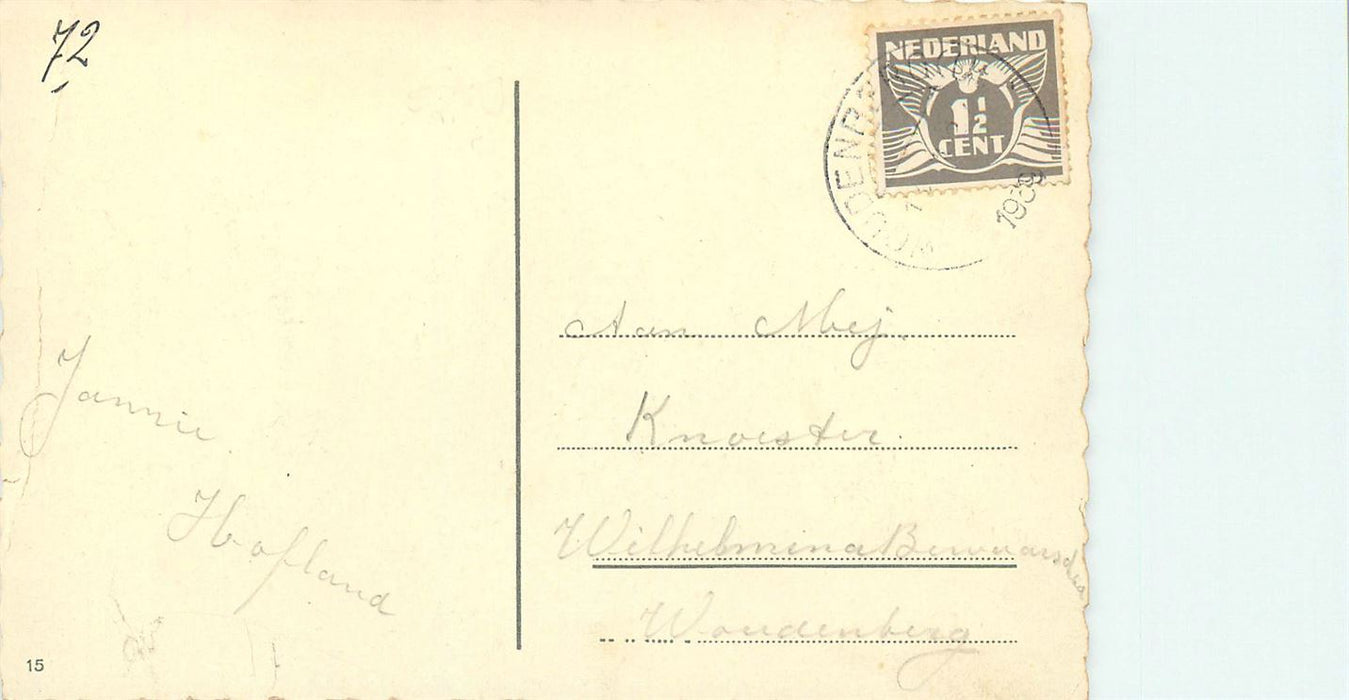 72
NEDERLAND
1 1/2
CENT
WOUDENB
1939
Jannie
Hofland
Aan Mej.
Knoester.
Wilhelmina Bewaarscho
Woudenberg
15